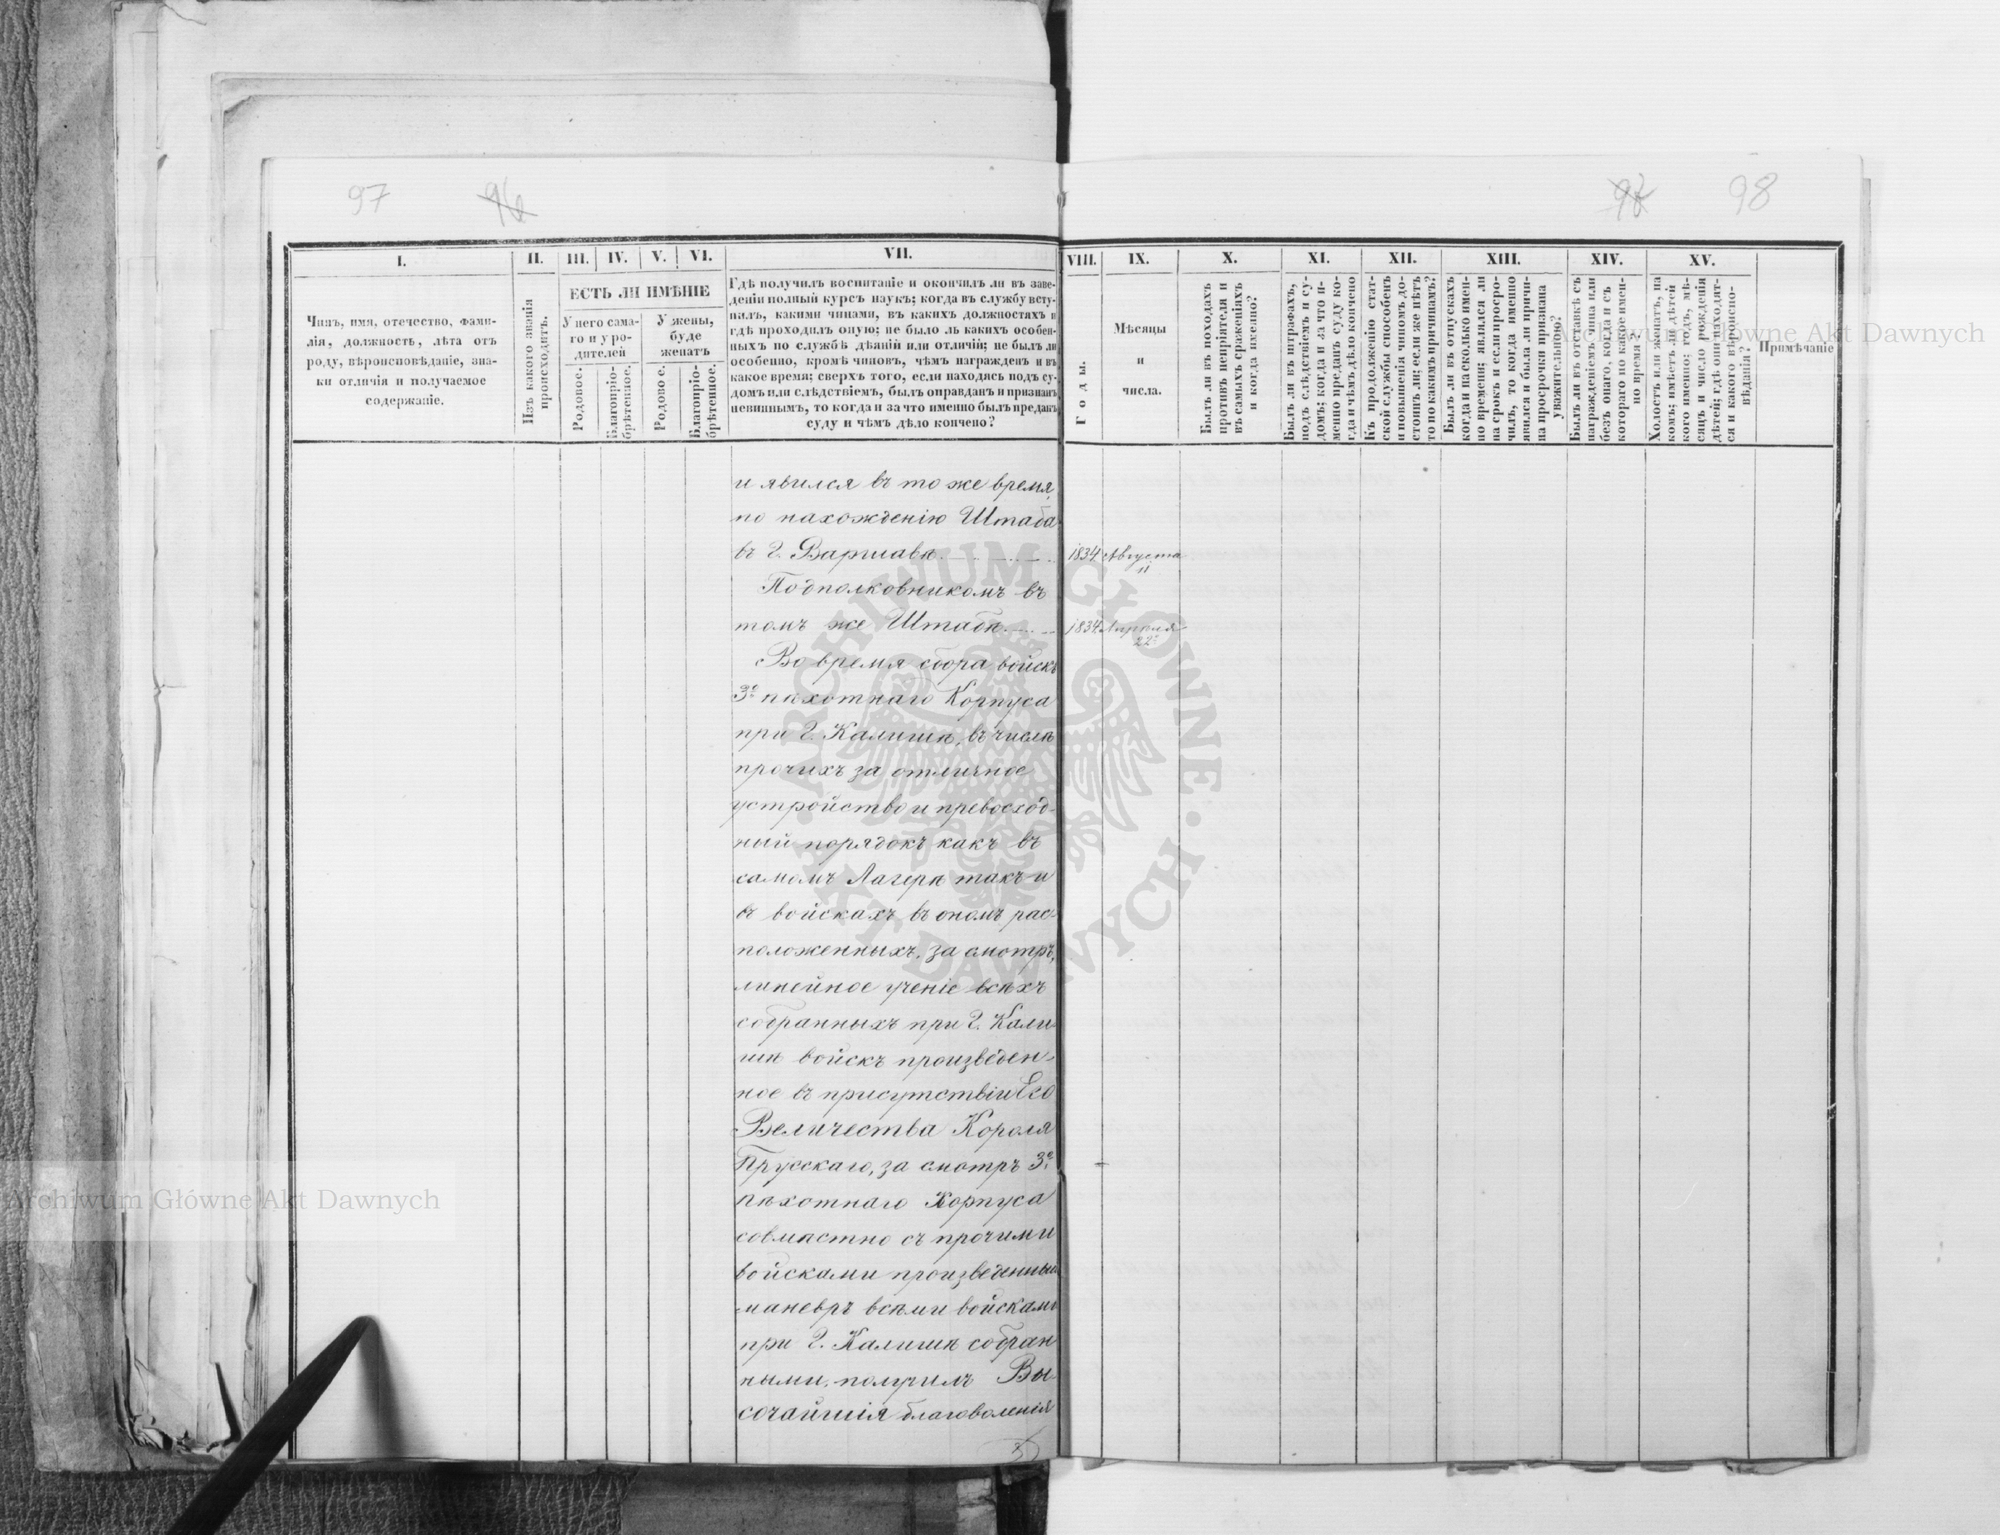 97
98
I.
II.
III.
IV.
V.
VI.
VII.
ЕСТЬ ЛИ ИМѢНІЕ
Чинъ, имя, отечество, фами-
лія, должность, лѣта отъ
роду, вѣроисповѣданіе, зна-
ки отличія и получаемое
содержаніе.
Изъ какого званія
происходитъ.
У него сама-
го и у ро-
дителей
У жены,
буде
женатъ
Родовое.
Благопріо-
брѣтенное.
Родовое.
Благопріо-
брѣтенное.
Гдѣ получилъ воспитаніе и окончилъ ли въ заве-
деніи полный курсъ наукъ; когда въ службу всту-
пилъ, какими чинами, въ какихъ должностяхъ и
гдѣ проходилъ оную; не было ль какихъ особен-
ныхъ по службѣ дѣяній или отличій; не былъ ли
особенно, кромѣ чиновъ, чѣмъ награжденъ и въ
какое время; сверхъ того, если находясь подъ су-
домъ или слѣдствіемъ, былъ оправданъ и признанъ
невиннымъ, то когда и за что именно былъ преданъ
суду и чѣмъ дѣло кончено?
и явился въ то же время,
по нахожденію Штаба
въ г. Варшавѣ.
Подполковникомъ въ
томъ же Штабѣ
Во время сбора войскъ
3го пѣхотнаго Корпуса
при г. Калишѣ, въ числѣ
прочихъ за отличное
устройство и превосход-
ный порядокъ какъ въ
самомъ Лагерѣ такъ и
въ войскахъ въ ономъ рас-
положенныхъ, за смотръ,
линейное ученіе всѣхъ
собранныхъ при г. Кали-
шѣ войскъ произведен-
ное въ присутствіи Его
Величества Короля
Прусскаго, за смотръ 3го
пѣхотнаго Корпуса
совмѣстно съ прочими
войсками произведенный
маневръ всѣми войсками
при г. Калишѣ собран
ными, получилъ Вы-
сочайшія благоволенія
VIII.
IX.
X.
XI.
XII.
XIII.
XIV.
XV.
Годы.
Мѣсяцы
и
числа.
Былъ ли въ походахъ
противъ непріятеля и
въ самыхъ сраженіяхъ
и когда именно?
Былъ ли въ штрафахъ,
подъ слѣдствіемъ и су-
домъ; когда и за что и-
менно преданъ суду ко-
гда и чѣмъ дѣло кончено
Къ продолженію стат-
ской службы способенъ
и повышенія чиномъ до-
стоинъ ли; если же нѣтъ
то по какимъ причинамъ?
Былъ ли въ отпускахъ
когда и на сколько имен-
но времени; являлся ли
на срокъ и если просро-
чилъ, то когда именно
явился и была ли причи-
на просрочки признана
уважительною?
Былъ ли въ отставкѣ съ
награжденіемъ чина или
безъ онаго, когда и съ
котораго по какое имен-
но время?
Холостъ или женатъ, на
комъ; имѣетъ ли дѣтей
кого именно; годъ, мѣ-
сяцъ и число рожденія
дѣтей; гдѣ они находят-
ся и какого вѣроиспо-
вѣданія?
Примѣчаніе
1834 Августа
11
1834 Апрѣля
22
Archiwum Główne Akt Dawnych
Archiwum Główne Akt Dawnych
ARCHIWUM GŁÓWNE · AKT DAWNYCH ·